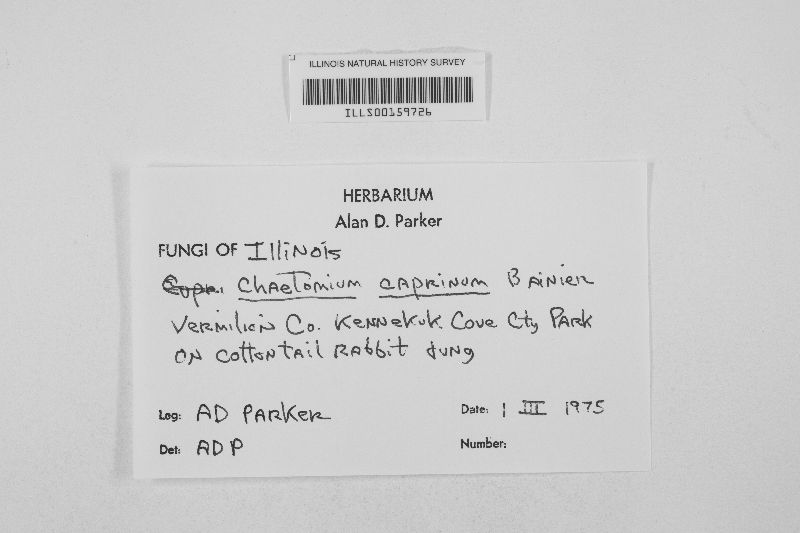 ILLINOIS NATURAL HISTORY SURVEY
ILLS00159726
HERBARIUM
Alan D. Parker
FUNGI OF Illinois
Chaetomium caprinum Bainier
Vermilion Co. Kennekuk Cove Cty Park
on cottontail rabbit dung
Leg: AD Parker Date: 1 III 1975
Det: ADP Number: